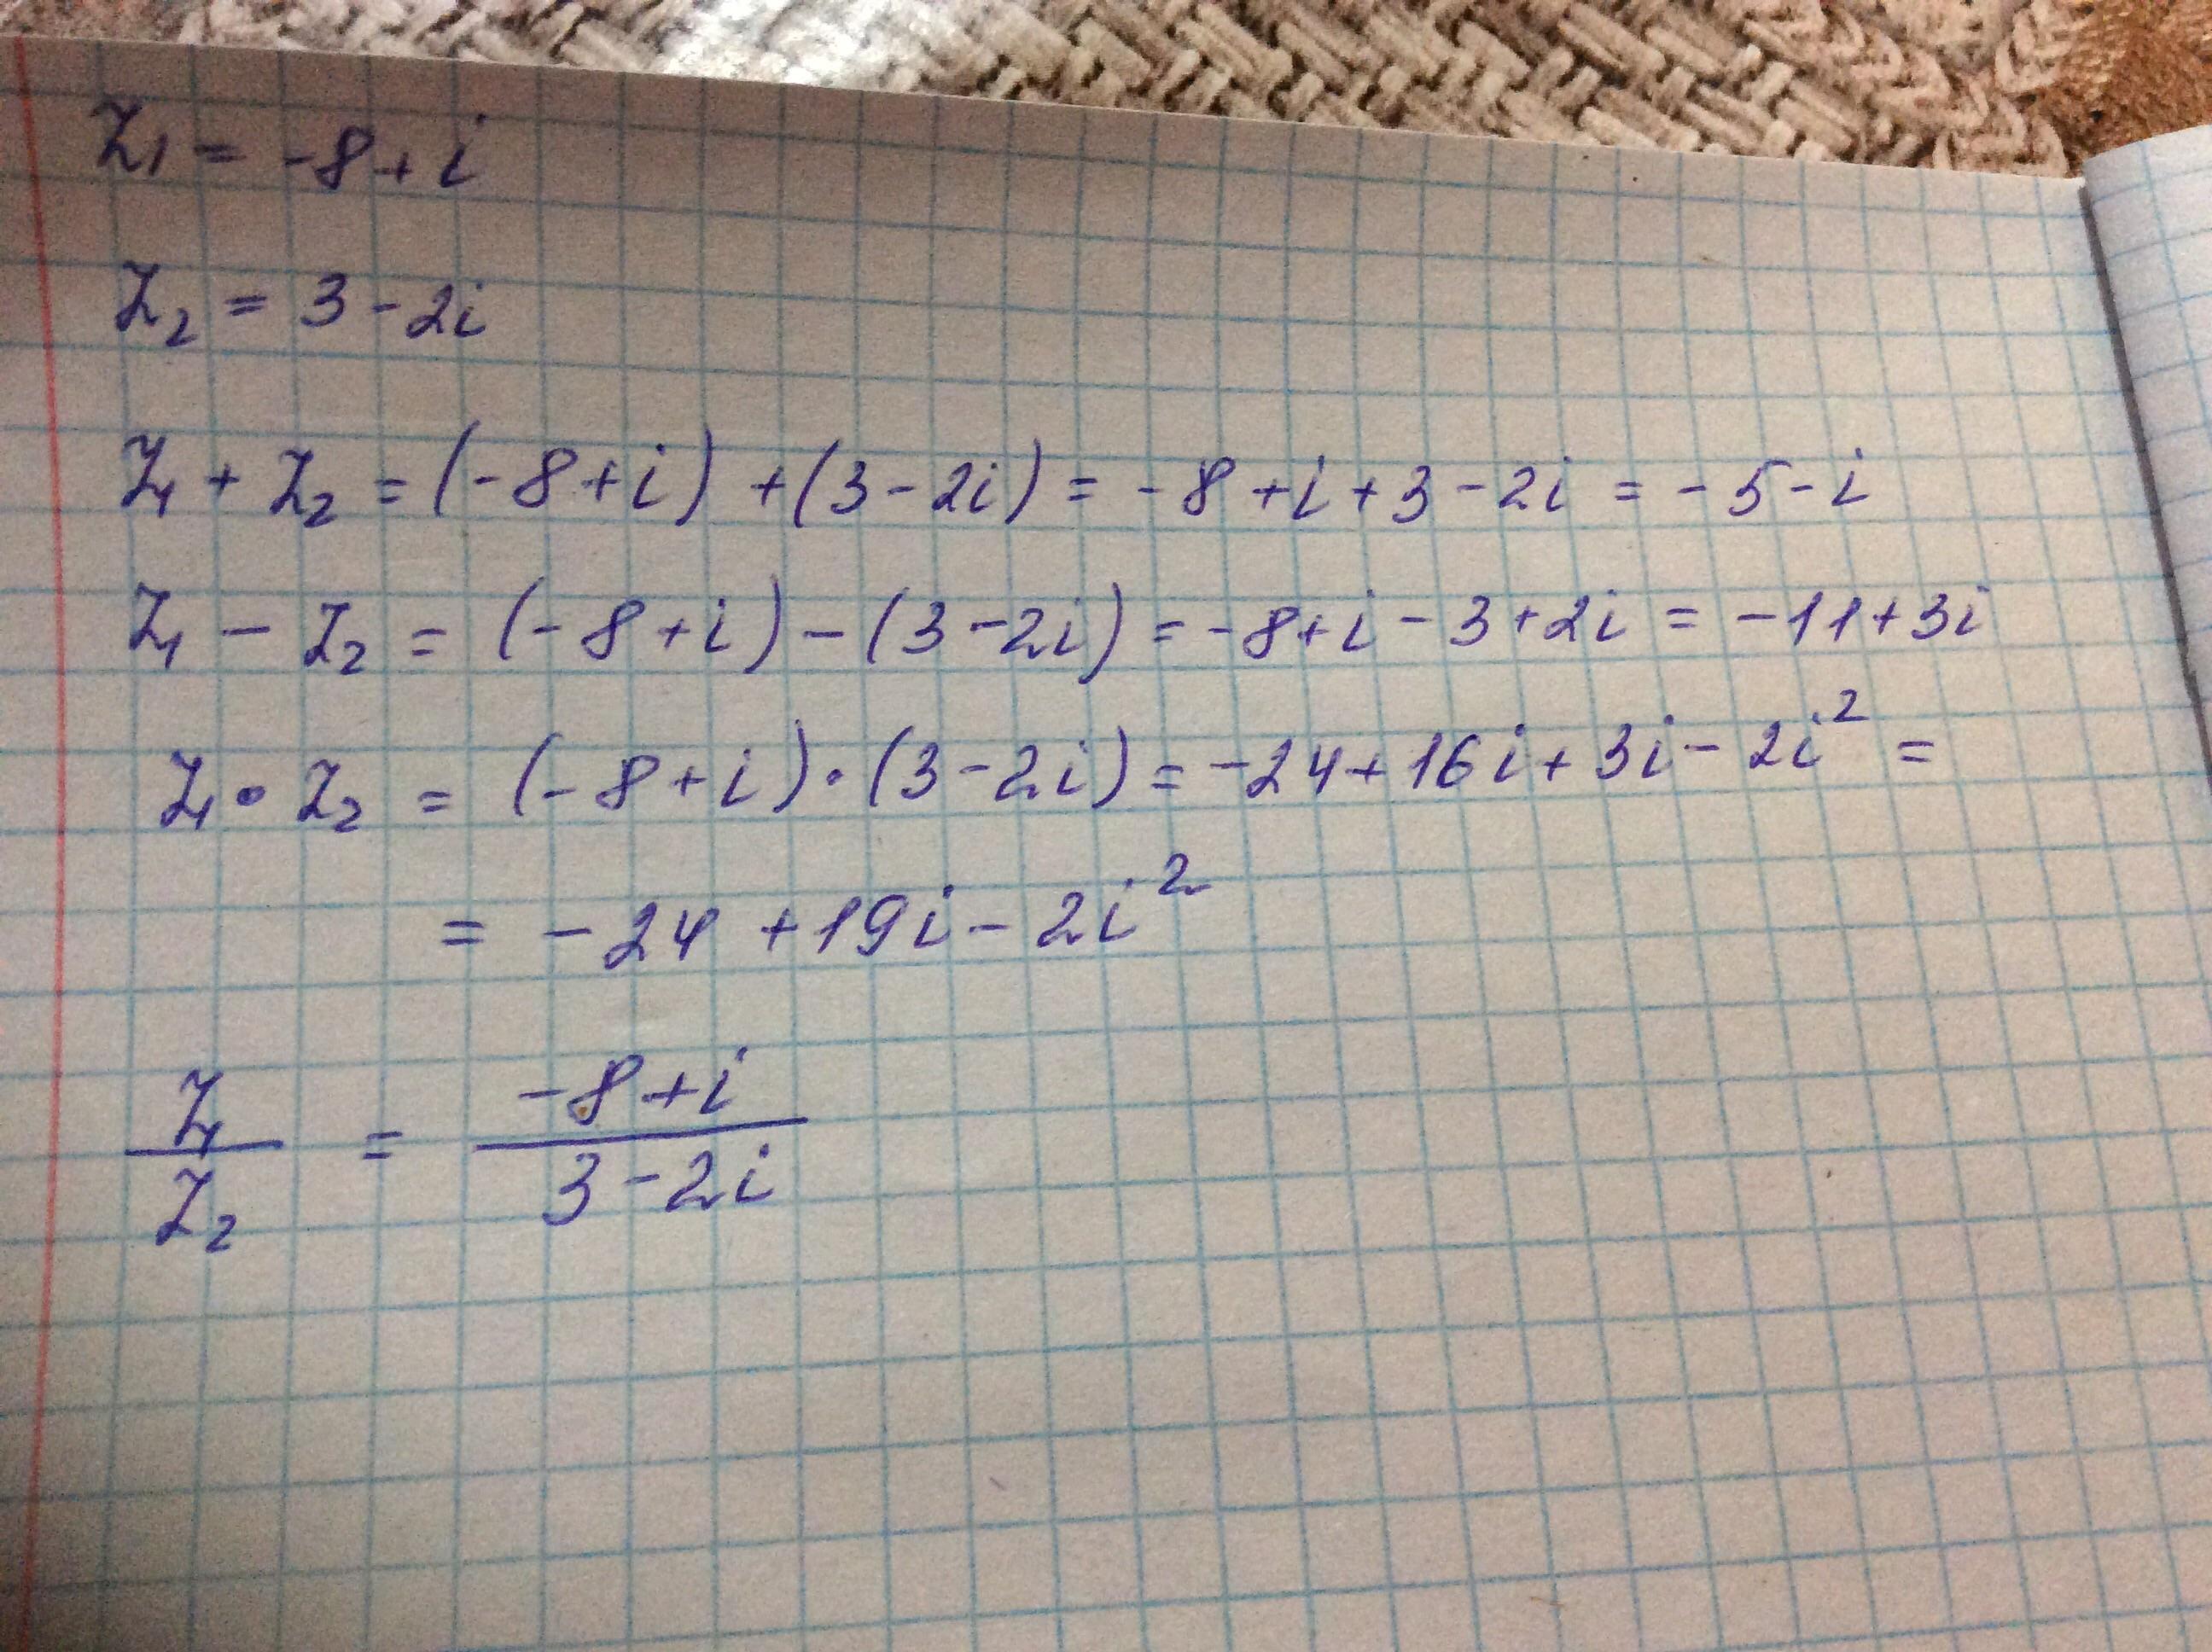 Z₁ = -8 + i
Z₂ = 3 - 2i
Z₁ + Z₂ = (-8 + i) + (3 - 2i) = -8 + i + 3 - 2i = -5 - i
Z₁ - Z₂ = (-8 + i) - (3 - 2i) = -8 + i - 3 + 2i = -11 + 3i
Z₁ • Z₂ = (-8 + i) • (3 - 2i) = -24 + 16i + 3i - 2i² =
= -24 + 19i - 2i²
Z₁/Z₂ = (-8 + i)/(3 - 2i)